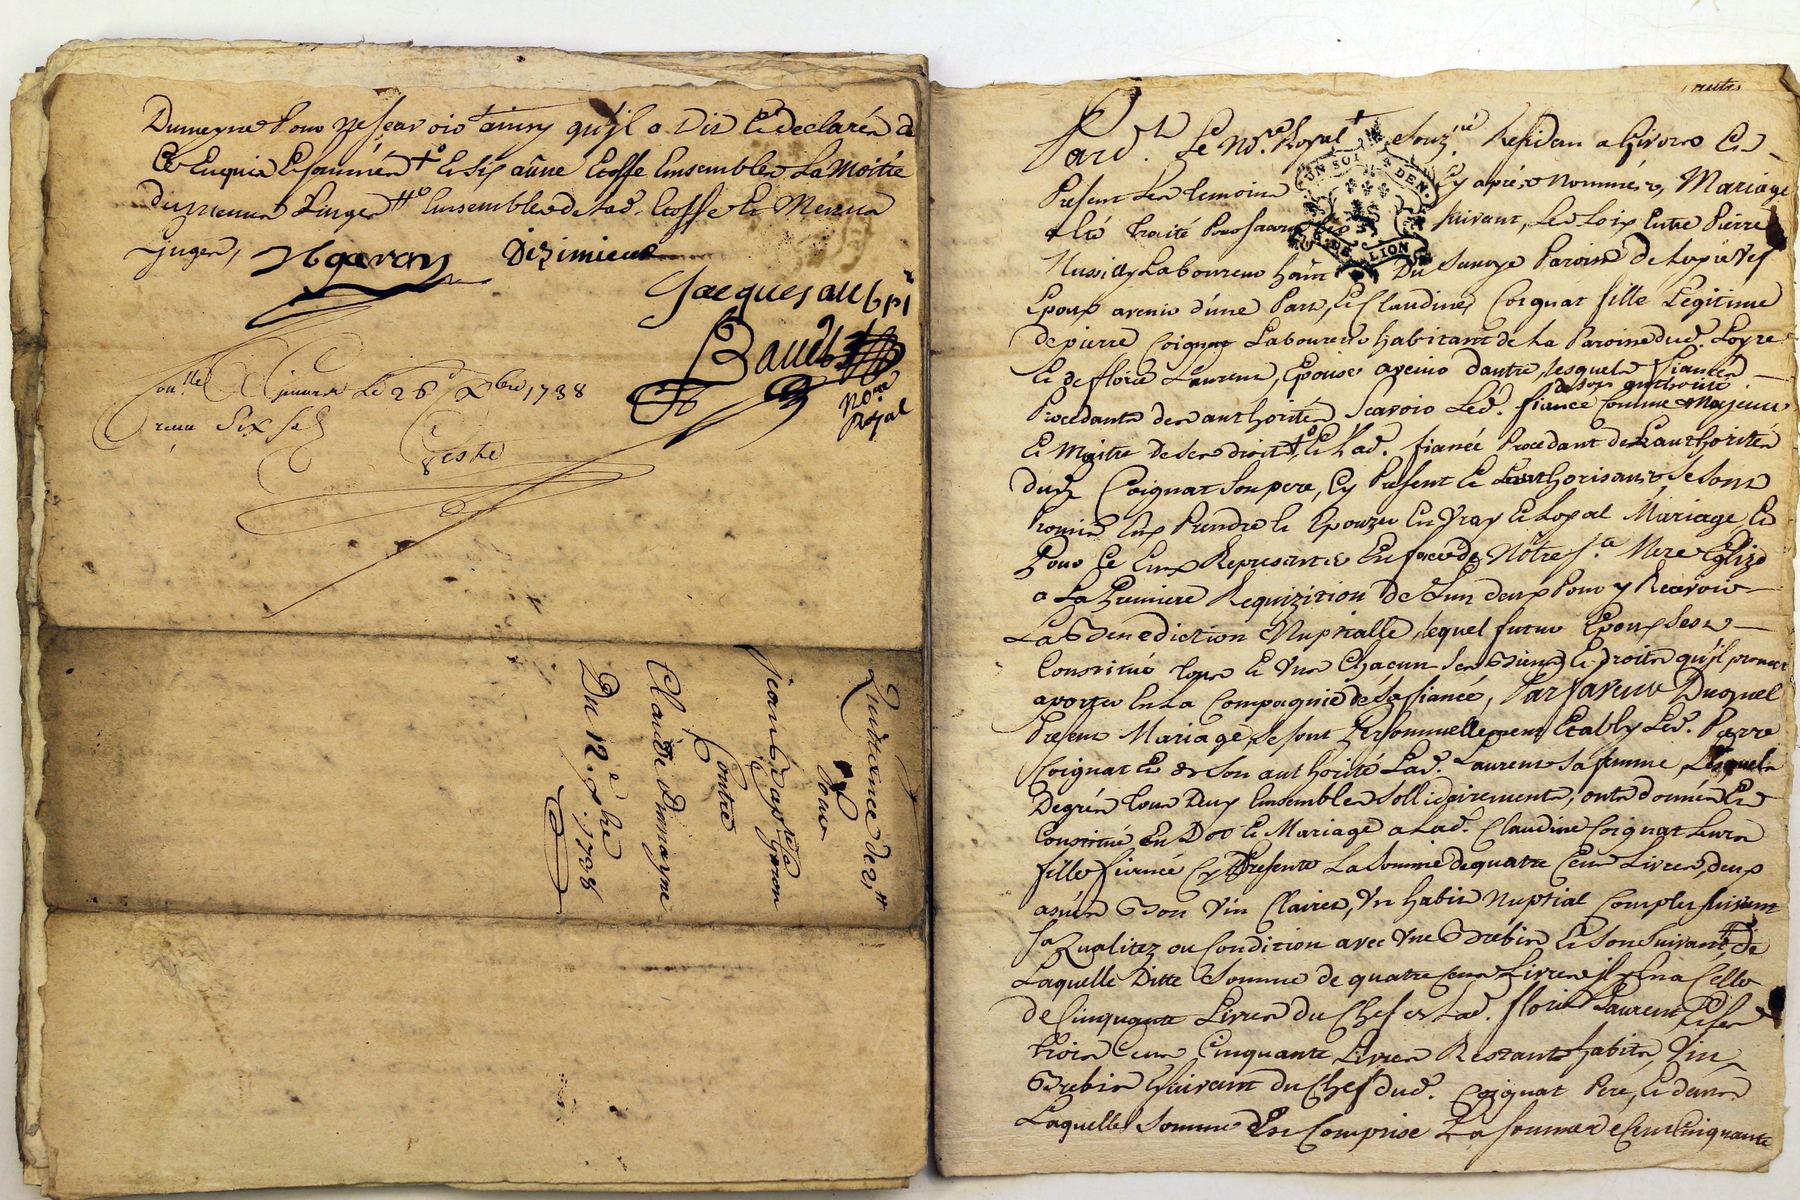 Dumeyne Pour ne scavoir ainsy qu'il a Dit et declaré a
Ce Enquis et sommé et six aûne Etoffe Ensemble La Moitie
du menu Linge Ensemble de lad. Etoffe et Menu
linger, Ngaron Dizimieux
Jacques aubri
Baud
No.re
Royal
Con.lle a Givors Le 26.e Xbre 1738
receu Six sols
Quittance de 2,tt
Pour
Jean Bap.te Garon
Contre
Claude Dumayne
Du 12.e Xbre
1738
Pard.t Le No.re Royal souz.né Residan a Givors Et
Present Les temoins Cy apres Nommés, Mariage
a été traité suivant, Les Loix Entre Pierre
UN SOL DEN
G. DE LION
Laboureur Paroisse de
Epoux avenir d'une Part, Et Claudine Coignat fille Legitime
de pierre Coignat Laboureur habitant de La Paroisse dud. Loyre
Et de florie Laurent, Epouse avenir d'autre, lesquels fiancés
de son authorité
Procedants de authorités Scavoir Led. fiancé Comme Majeur
Et Maitre de ses droits Et Lad. fiancée Procedant de L'authorité
dud. Coignat son pere, Cy Present Et L'authorisant, se sont
Promis Eux Prendre Et Epouzer En Vray Et Loyal Mariage, Et
Pour Ce Eux Representer En face de Nôtre S.te Mere Eglize
a La Premiere Requizition de L'un d'eux Pour y Recevoir
La Benediction Nuptialle, lequel futur Epoux s'est
Constitué tous Et Uns Chacuns ses Biens Et droits qu'il promet
aporter En La Compagnie de sa fiancée, Par faveur Duquel
Present Mariage, se sont Personnellement Etably Led. Pierre
Coignat Et de son authorité Lad. Laurent sa femme, Lesquels
Degrés tous Deux Ensembles sollidairement, ont donné Et
Constitué En Dot Et Mariage a Lad. Claudine Coignat Leur
fille fiancée Cy Presente La Somme de quatre Cent Livres, deux
asnées Bon Vin Clairet, Un habit Nuptial Complet suivant
sa Qualitez ou Condition avec Une Brebis Et son Suivant, de
Laquelle Ditte Somme de quatre cent Livres il y En a Celle
de Cinquante Livres du Chef de Lad. florie Laurent, Et les
trois Cent Cinquante Livres Restant habits, Vin
Brebis Suivant du Chef dud. Coignat Pere, Et dans
Laquelle Somme Est Comprise La Somme de Cent Cinquante